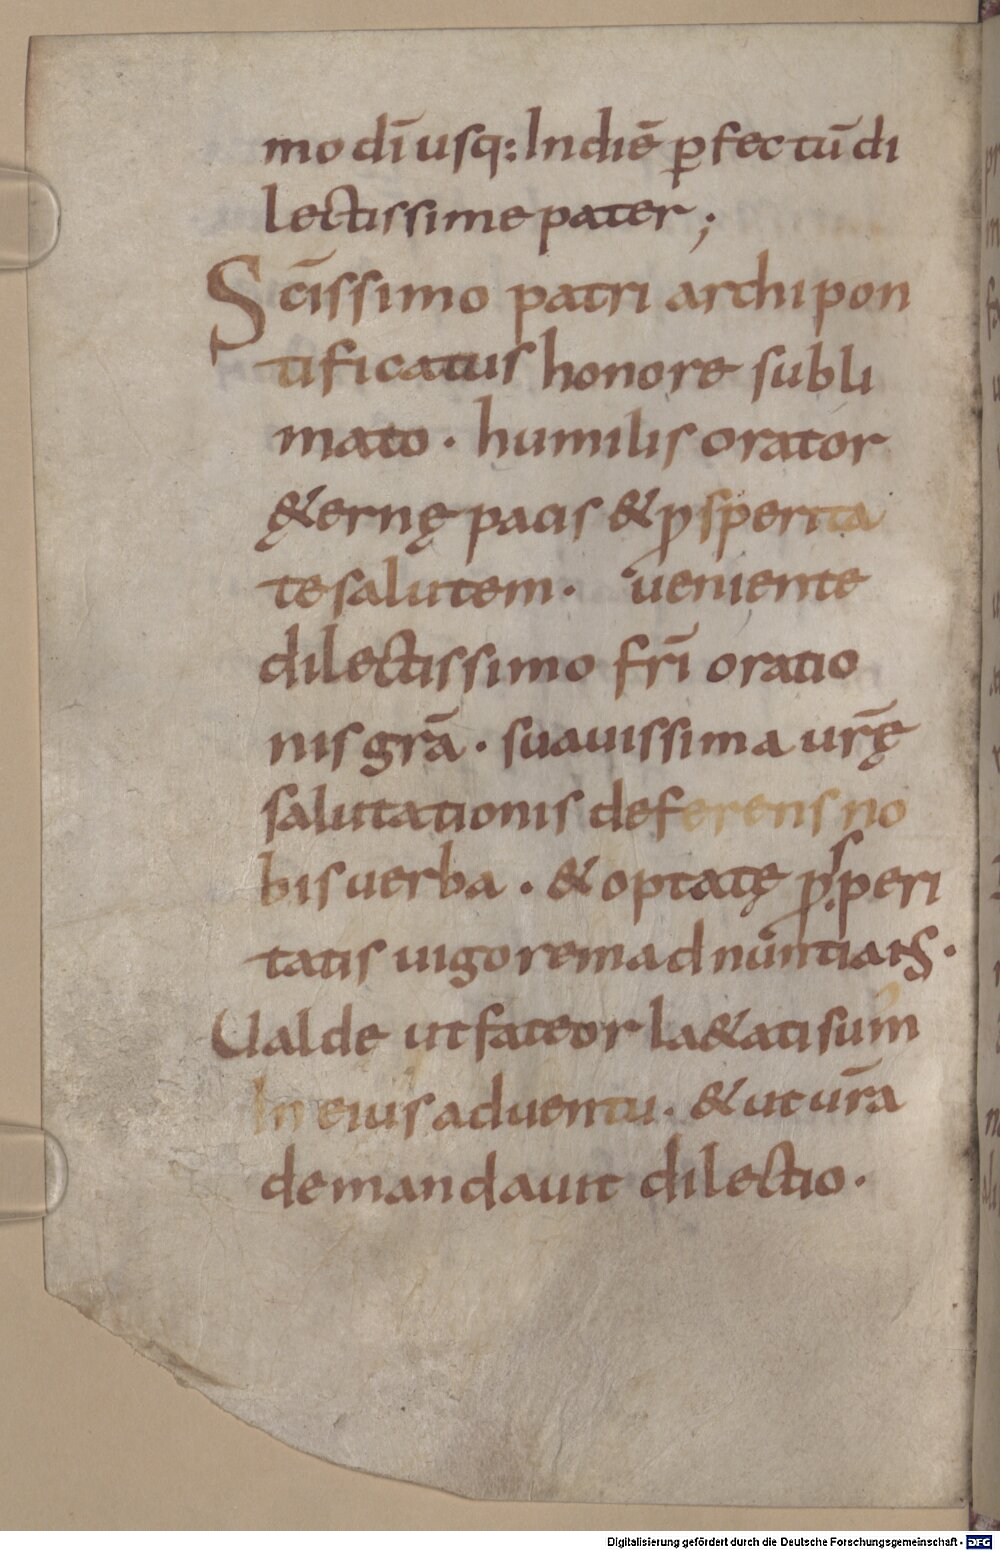 modi̅ usq: Indie̅ ꝑfectu̅ di
lectissime pater ;
Sc̅issimo patri archipon
tificatus honore subli
mato . humilis orator
&ernę pacis & ꝓsperita
te salutem . ueniente
dilectissimo fr̅i oratio
nis gr̅a . suauissima ur̅ę
salutationis deferens no
bis uerba . & optatę ꝓsperi
tatis uigorem adnuntians .
Ualde ut fateor la&ati sum
In eius aduentu . & ut ur̅a
demandauit dilectio .
Digitalisierung gefördert durch die Deutsche Forschungsgemeinschaft - DFG